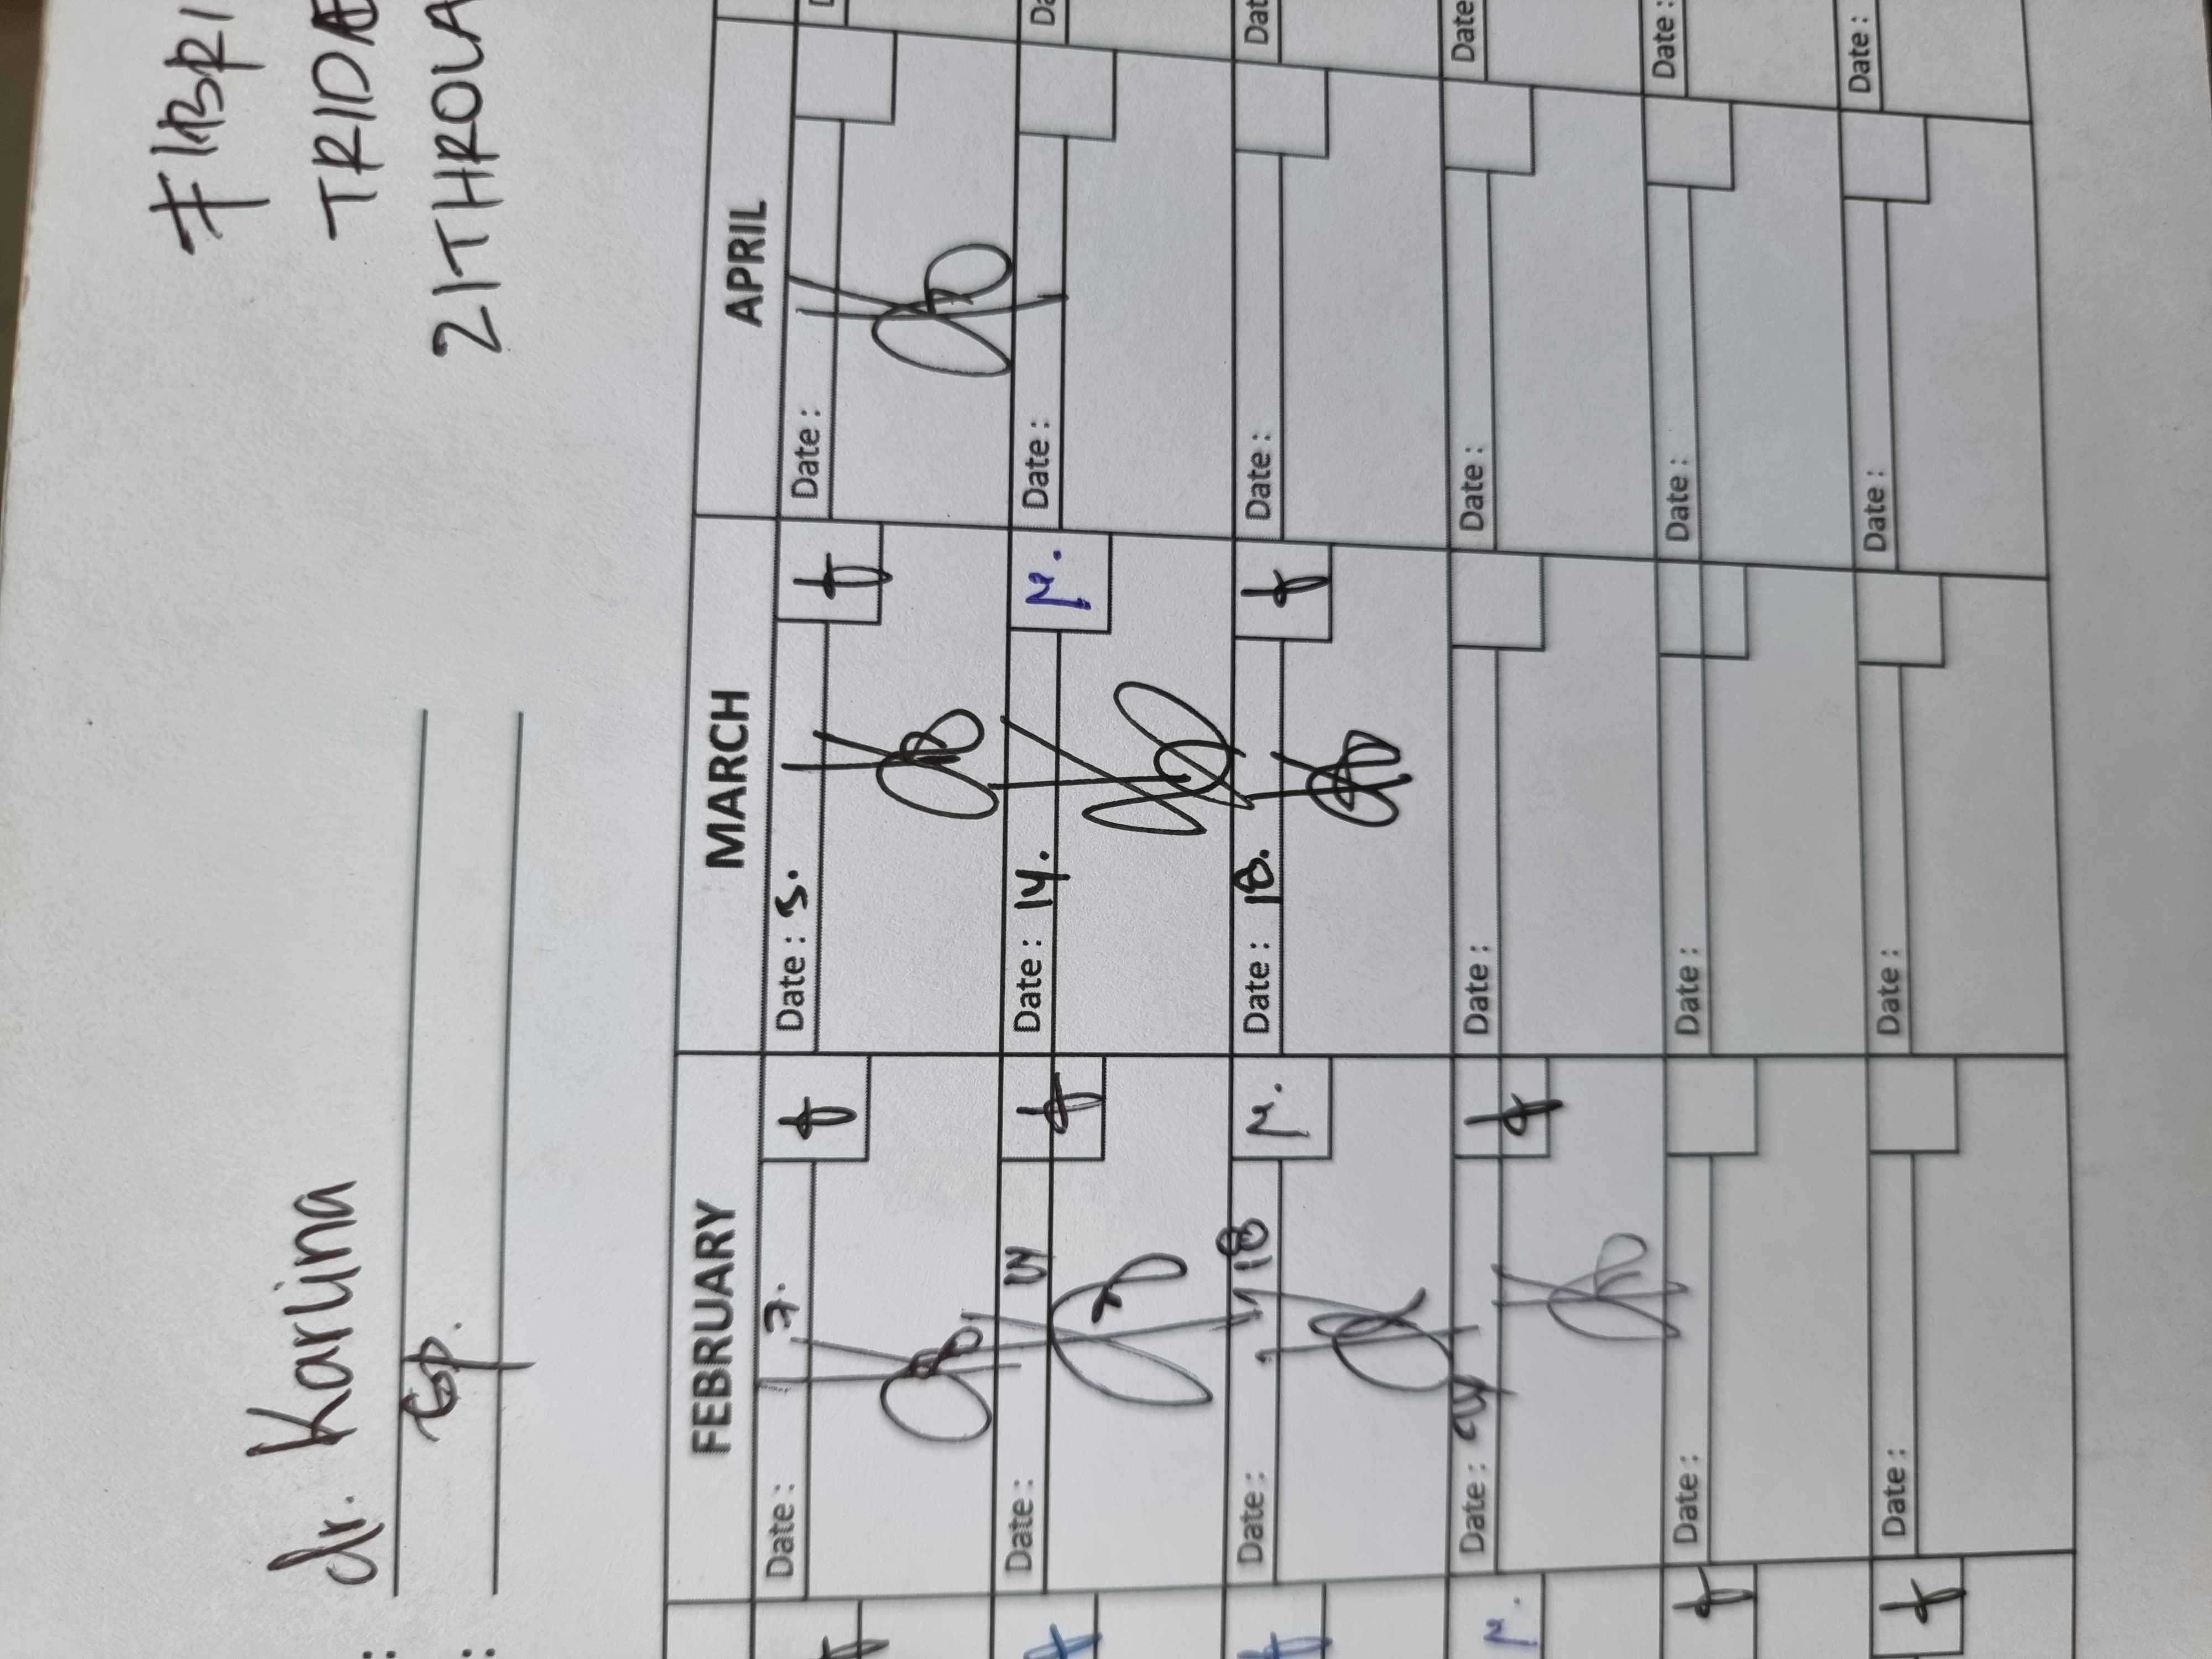 dr. Karlina
FIBRI
TRIDA
21THROLA
FEBRUARY MARCH APRIL
Date : 7. Date : 5. Date :
Date : 14 Date : 14. Date : Da
Date : 18 Date : 18. Date : Dat
Date : 24 Date : Date : Date
Date : Date : Date : Date :
Date : Date : Date : Date :